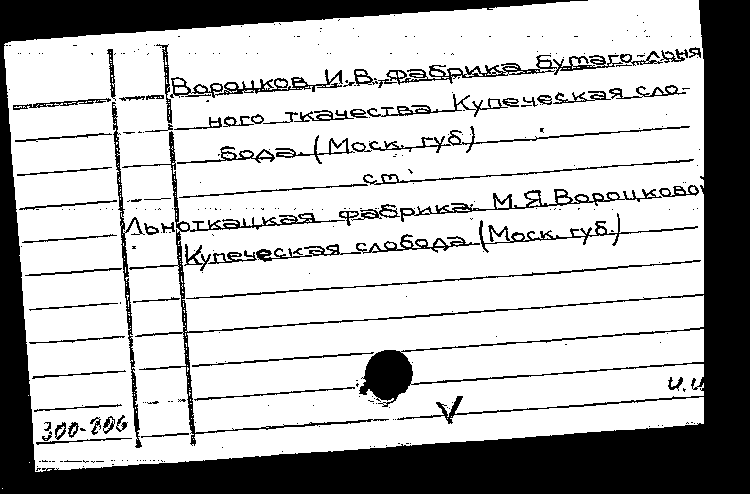 Вороцков, И.В., фабрика бумаго-льня
ного ткачества. Купеческая сло-
бода. (Моск. губ.)
см.:
Льноткацкая фабрика М.Я. Вороцковой
Купеческая слобода. (Моск. губ.)
И.И
300-806
V